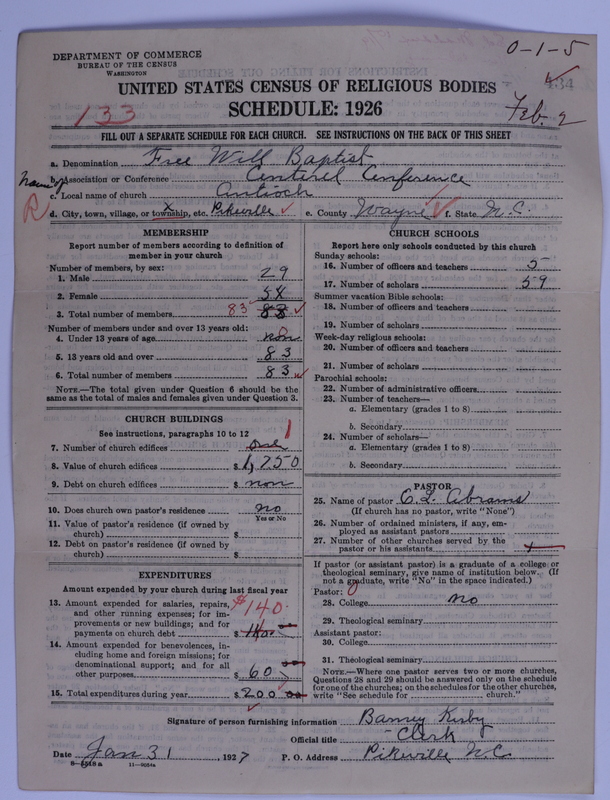 DEPARTMENT OF COMMERCE
BUREAU OF THE CENSUS
WASHINGTON
0-1-5
434
UNITED STATES CENSUS OF RELIGIOUS BODIES
SCHEDULE: 1926
133
Feb. 2
FILL OUT A SEPARATE SCHEDULE FOR EACH CHURCH. SEE INSTRUCTIONS ON THE BACK OF THIS SHEET
a. Denomination Free Will Baptist
b. Association or Conference Centerel Conference
Name of
c. Local name of church Antioch
R
d. City, town, village, or township, etc. Pikeville e. County Wayne f. State N.C.
MEMBERSHIP
Report number of members according to definition of
member in your church
Number of members, by sex:
1. Male 29
2. Female 54
3. Total number of members 83 88
Number of members under and over 13 years old:
4. Under 13 years of age non 0
5. 13 years old and over 83
6. Total number of members 83
NOTE.—The total given under Question 6 should be the
same as the total of males and females given under Question 3.
CHURCH BUILDINGS
See instructions, paragraphs 10 to 12
7. Number of church edifices One 1
8. Value of church edifices $ 1,750
9. Debt on church edifices $ non
10. Does church own pastor's residence no
Yes or No
11. Value of pastor's residence (if owned by
church) $
12. Debt on pastor's residence (if owned by
church) $
EXPENDITURES
Amount expended by your church during last fiscal year
13. Amount expended for salaries, repairs,
and other running expenses; for im-
provements or new buildings; and for
payments on church debt $ 140
$140.
14. Amount expended for benevolences, in-
cluding home and foreign missions; for
denominational support; and for all
other purposes $ 60
15. Total expenditures during year $ 200
CHURCH SCHOOLS
Report here only schools conducted by this church
Sunday schools:
16. Number of officers and teachers 5
17. Number of scholars 59
Summer vacation Bible schools:
18. Number of officers and teachers
19. Number of scholars
Week-day religious schools:
20. Number of officers and teachers
21. Number of scholars
Parochial schools:
22. Number of administrative officers
23. Number of teachers—
a. Elementary (grades 1 to 8)
b. Secondary
24. Number of scholars—
a. Elementary (grades 1 to 8)
b. Secondary
PASTOR
25. Name of pastor C. L. Abrams
(If church has no pastor, write "None")
26. Number of ordained ministers, if any, em-
ployed as assistant pastors
27. Number of other churches served by the
pastor or his assistants
If pastor (or assistant pastor) is a graduate of a college or
theological seminary, give name of institution below. (If
not a graduate, write "No" in the space indicated.)
Pastor: 0
28. College no
29. Theological seminary
Assistant pastor:
30. College
31. Theological seminary
NOTE.—Where one pastor serves two or more churches,
Questions 28 and 29 should be answered only on the schedule
for one of the churches; on the schedules for the other churches,
write "See schedule for church."
Signature of person furnishing information Barney Kirby
Official title Clerk
Date Jan 31, 1927 P. O. Address Pikeville N.C.
8-5518 a 11-9584a